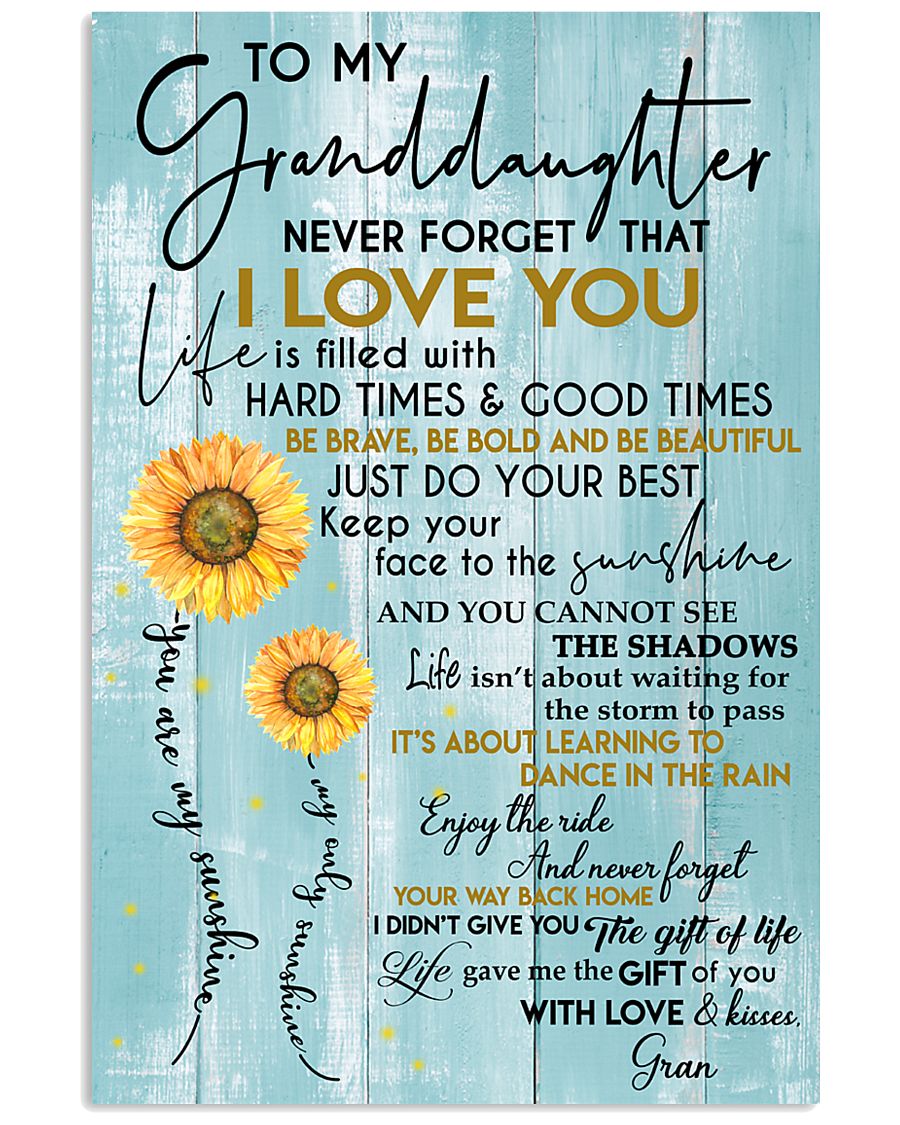 TO MY
Granddaughter
NEVER FORGET THAT
I LOVE YOU
Life is filled with
HARD TIMES & GOOD TIMES
BE BRAVE, BE BOLD AND BE BEAUTIFUL
JUST DO YOUR BEST
Keep your
face to the sunshine
AND YOU CANNOT SEE
THE SHADOWS
Life isn't about waiting for
the storm to pass
IT'S ABOUT LEARNING TO
DANCE IN THE RAIN
Enjoy the ride
And never forget
YOUR WAY BACK HOME
I DIDN'T GIVE YOU The gift of life
Life gave me the GIFT of you
WITH LOVE & kisses,
Gran
you are my sunshine
my only sunshine